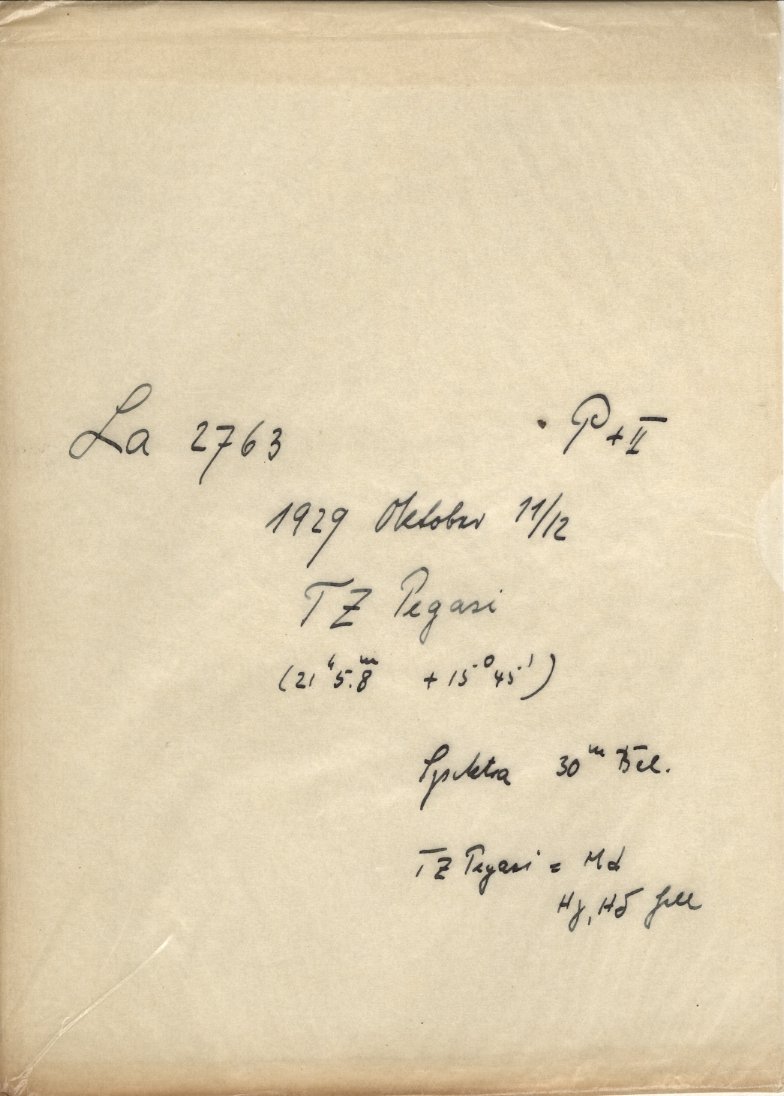 La 2763 P+II
1929 Oktober 11/12
TZ Pegasi
(21ʰ5.8ᵐ +15°45')
Spektra 30ᵐ Bel.
TZ Pegasi = Md
Hγ, Hδ hell